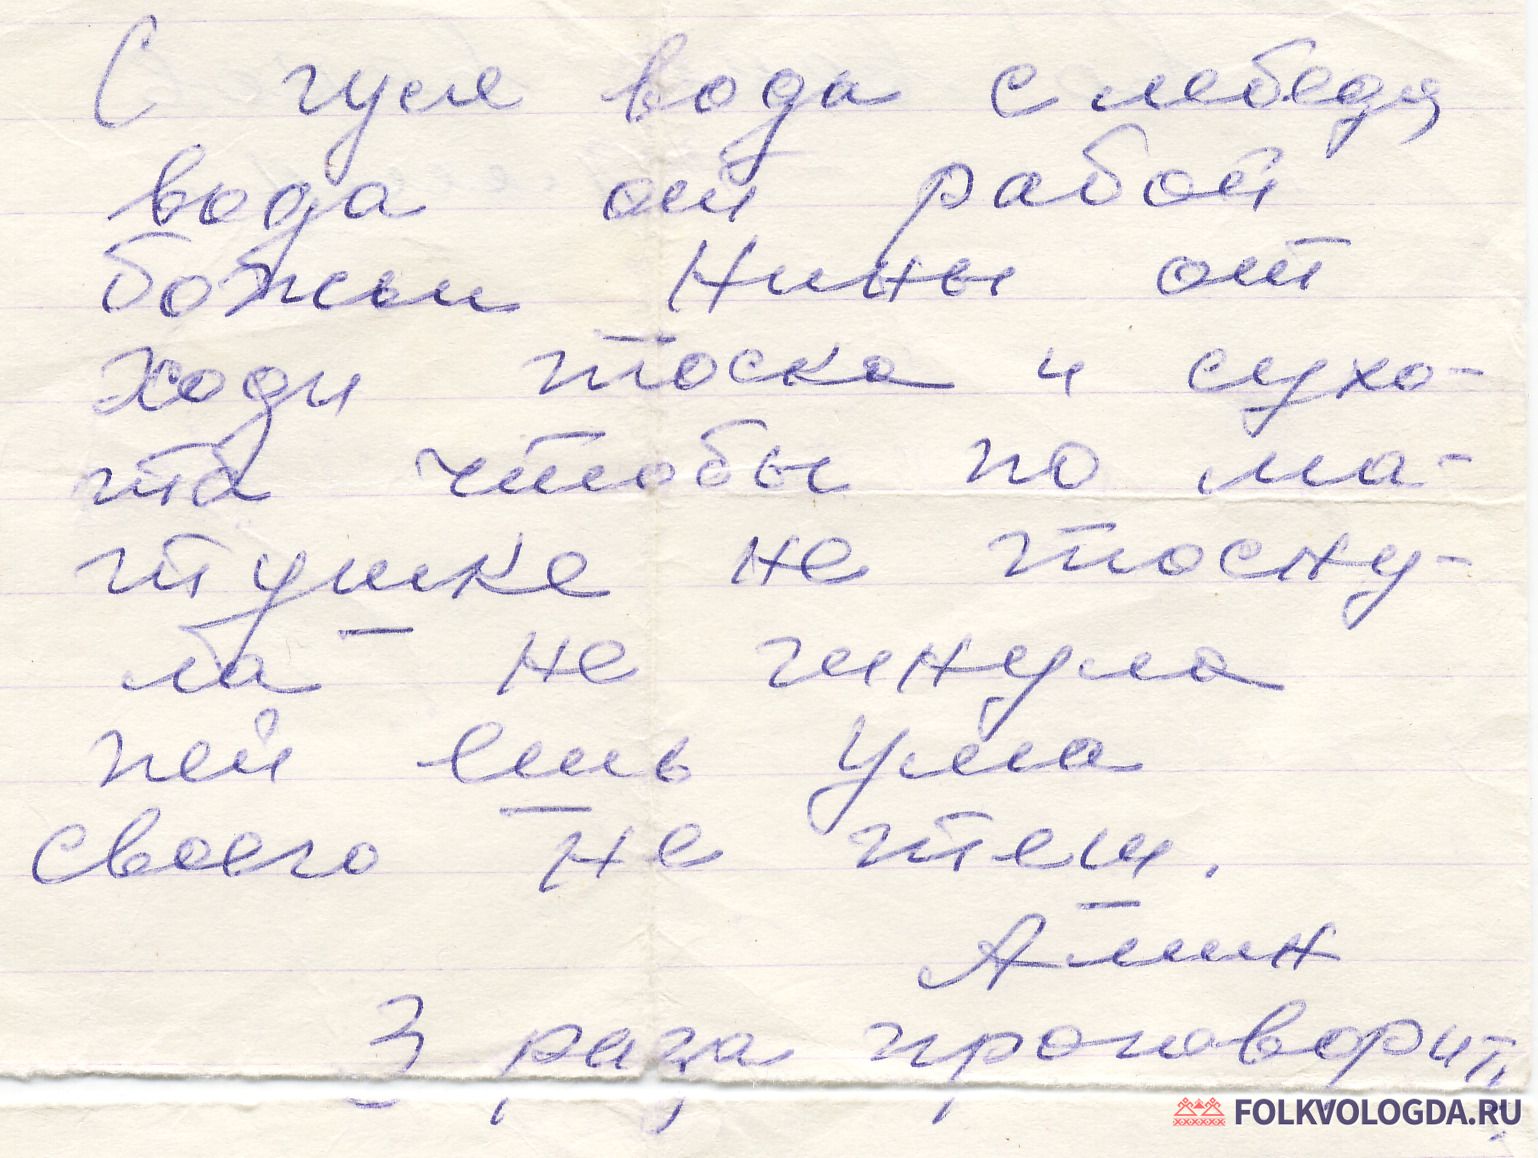 С гуся вода с лебедя
вода от рабой
божьи Нины от
ходи тоска и сухо-
та чтобы по ма-
тушке не тоску-
ла не гинула
пей ешь ума
своего не теш.
Аминь
3 раза проговорит,
FOLKVOLOGDA.RU